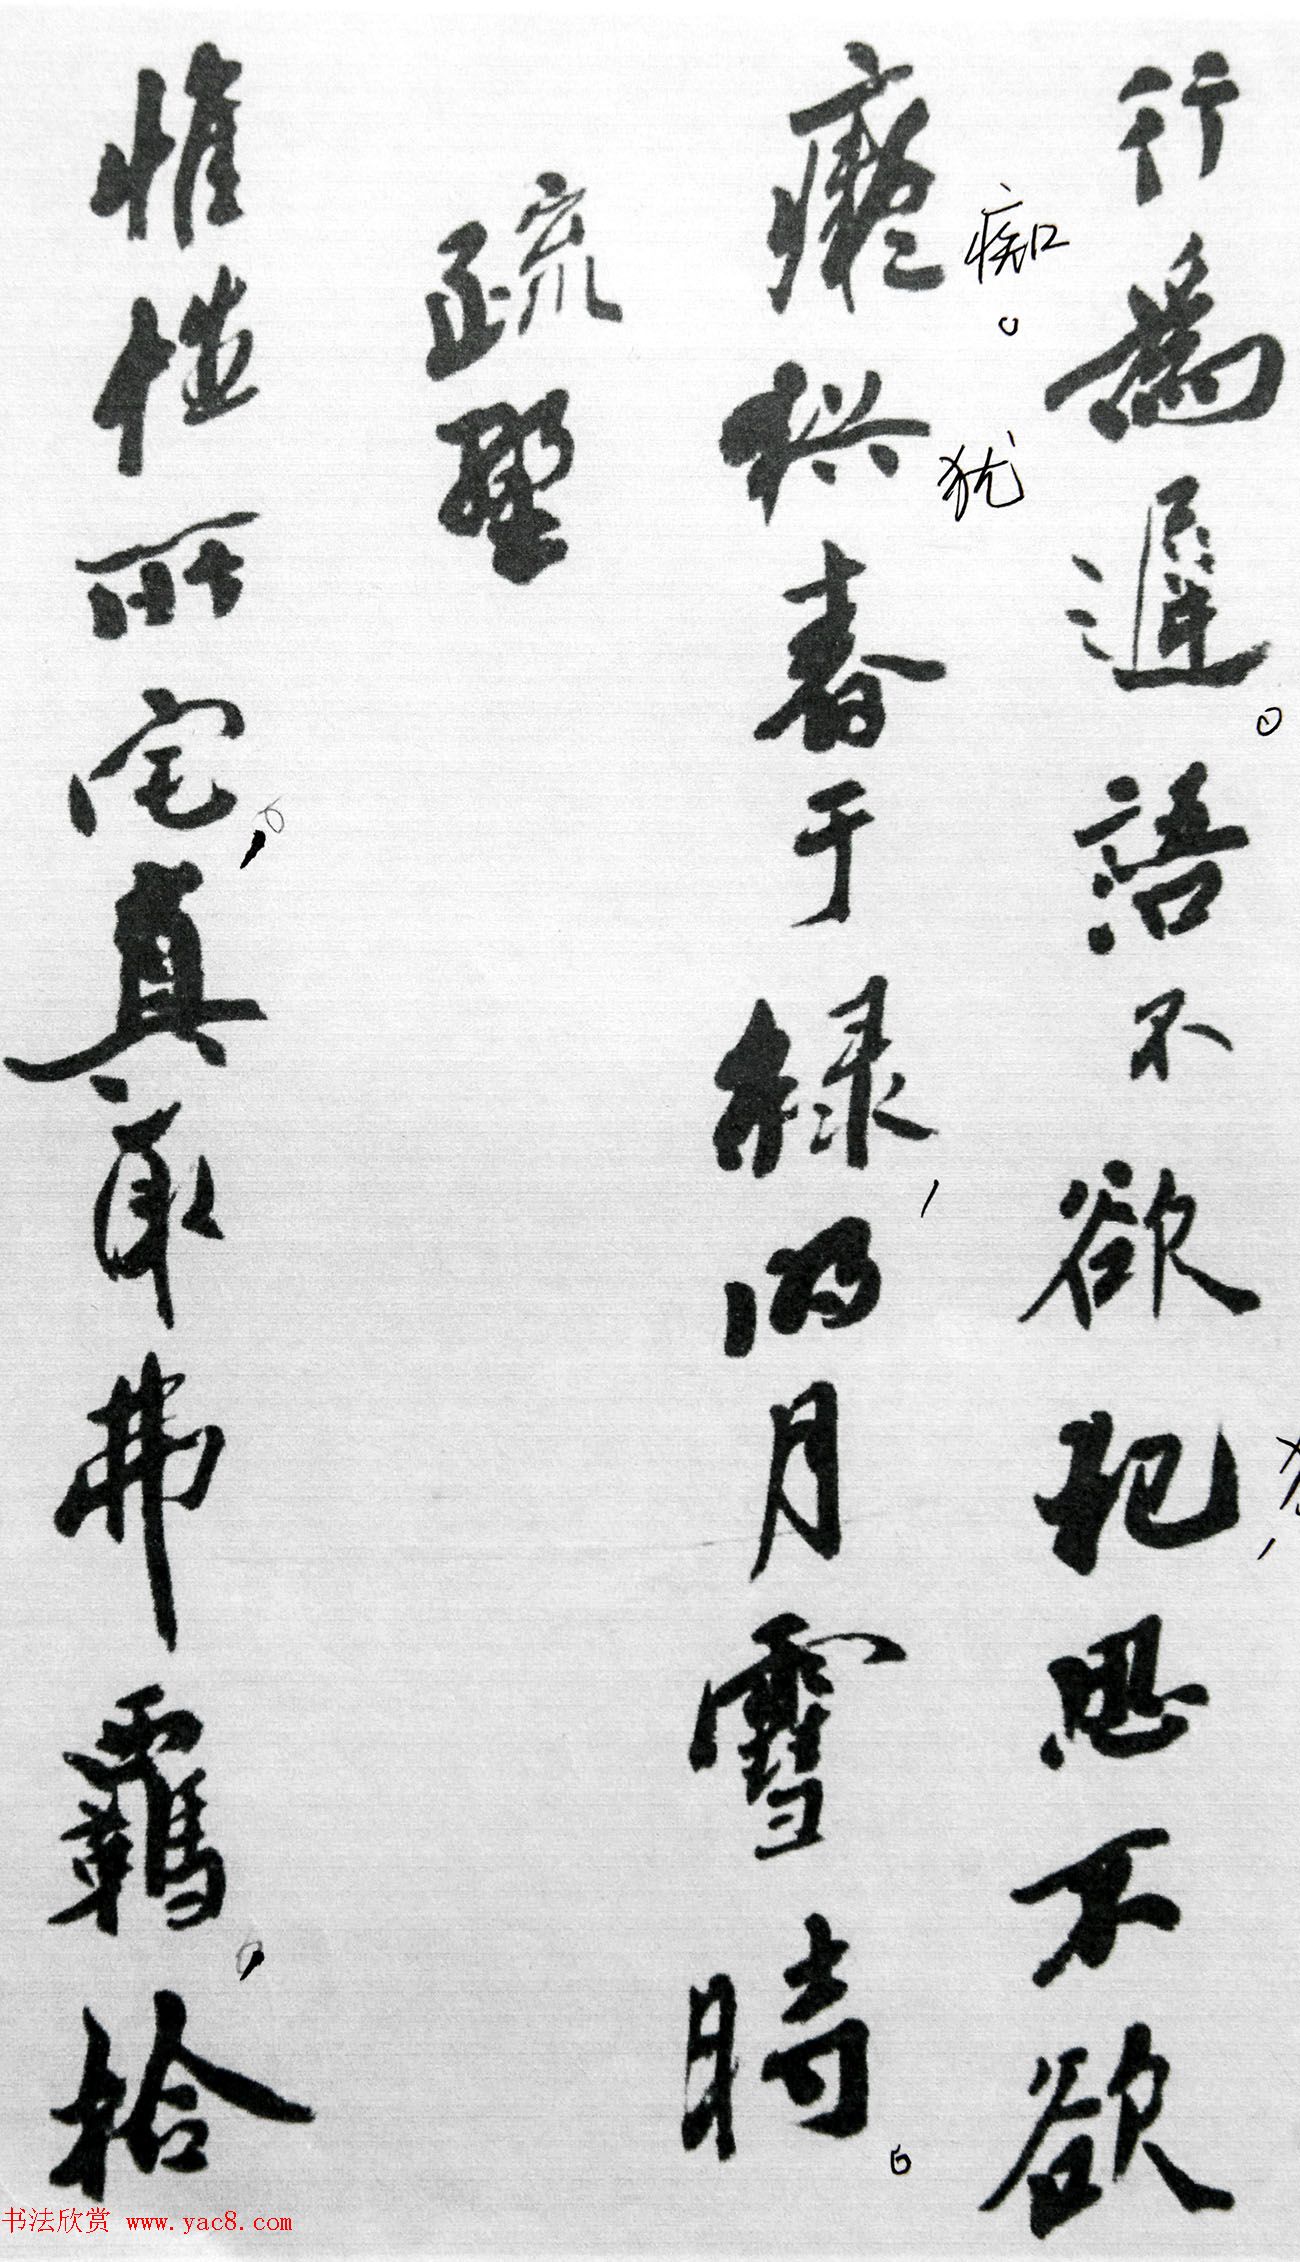 行為遲。語不欲犯,思不欲
癡。猶春于綠,明月雪時。
痴
犹
疏野
惟性所宅,真取弗羈,拾
书法欣赏 www.yac8.com